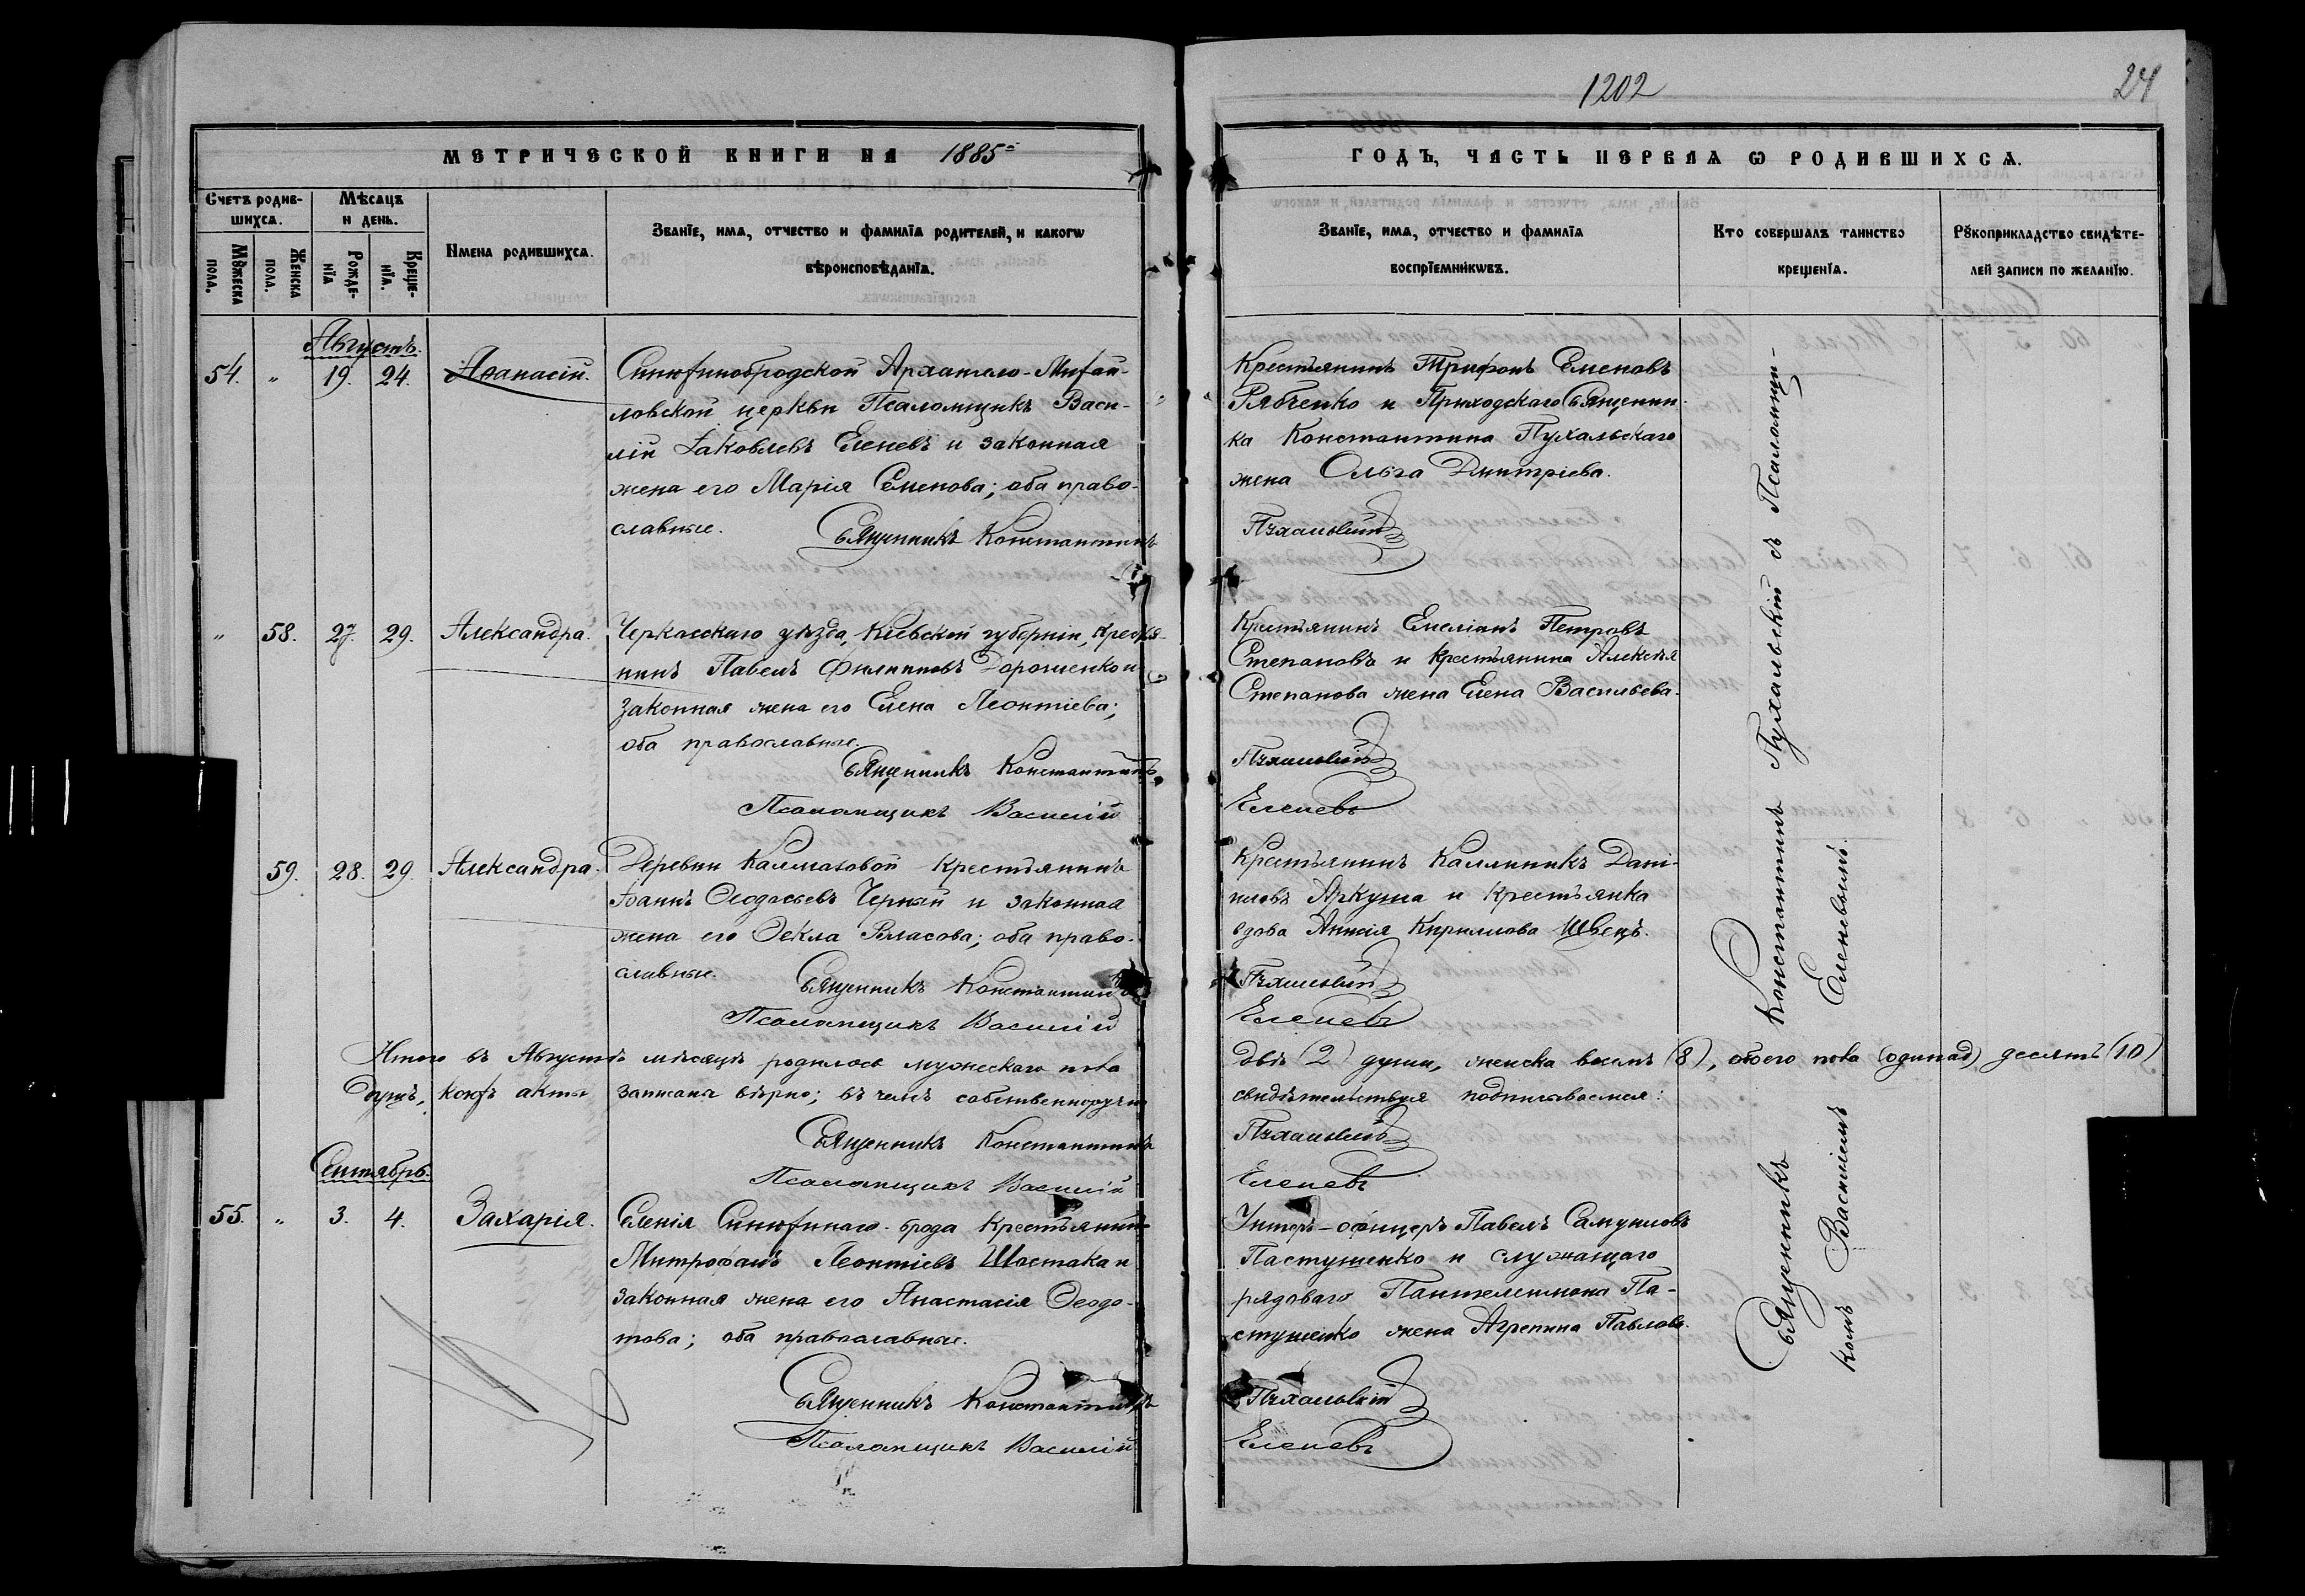 1202
24
МЕТРИЧЕСКОЙ КНИГИ НА 1885й
ГОДЪ, ЧАСТЬ ПЕРВАѦ Ѡ РОДИВШИХСѦ.
Счетъ родив-
шихсѧ.
Мѣсѧцъ
и день.
Мꙋжеска
пола.
Женска
пола.
Рожде-
нїѧ
Креще-
нїѧ.
Имена родившихсѧ.
Званїе, имѧ, отчество и фамилїѧ родителей, и какогѡ
вѣроисповѣданїѧ.
Званїе, имѧ, отчество и фамилїѧ
воспрїемникѡвъ.
Кто совершалъ таинство
крещенїѧ.
Рꙋкоприкладство свидѣте-
лей записи по желанїю.
Августъ.
54. " 19. 24. Аѳанасій.
Синюхинобродской Архангело-Михай-
ловской церкви Псаломщикъ Васи-
лій Іаковлевъ Еленевъ и законная
жена его Марія Семенова; оба право-
славные.
Священникъ Константинъ
Крестьянинъ Трифонъ Семеновъ
Рябченко и Приходскаго Священни-
ка Константина Пухальскаго
жена Ольга Дмитріева.
Пухальскій
" 58. 27. 29. Александра.
Черкасскаго уѣзда, Кіевской губерніи, Крестья-
нинъ Павелъ Филиповъ Дорошенко и
законная жена его Елена Леонтіева;
оба православные.
Священникъ Константинъ
Псаломщикъ Василій
Крестьянинъ Емеліанъ Петровъ
Степановъ и крестьянина Алексѣя
Степанова жена Елена Васильева.
Пухальскій
Еленевъ
59. 28. 29. Александра.
Деревни Калмазовой Крестьянинъ
Іоаннъ Ѳеодосьевъ Черный и законная
жена его Ѳекла Власова; оба право-
славные.
Священникъ Константинъ
Псаломщикъ Василій
Крестьянинъ Каллиникъ Дані-
иловъ Аркуша и Крестьянка
вдова Аннія Кириллова Швецъ.
Пухальскій
Еленевъ
Итого въ Августѣ мѣсяцѣ родилось мужескаго пола двѣ (2) души, женска восемъ (8), обоего пола (одинад) десять (10)
душъ, коихъ акты записаны вѣрно; въ чемъ собственноручно свидѣтельствуя подписываемся:
Священникъ Константинъ Пухальскій
Псаломщикъ Василій Еленевъ
Сентябрь.
55. " 3. 4. Захарія.
Селенія Синюхинаго-брода Крестьянинъ
Митрофанъ Леонтіевъ Шостака и
законная жена его Анастасія Ѳеодо-
това; оба православные.
Священникъ Константинъ
Псаломщикъ Василій
Унтеръ-офицеръ Павелъ Самуиловъ
Пастушенко и служащаго
рядоваго Пантелеимона Па-
стушенко жена Агрепина Павлова.
Пухальскій
Еленевъ
Священникъ Константинъ Пухальскій съ Псаломщи-
комъ Василіемъ Еленевымъ.